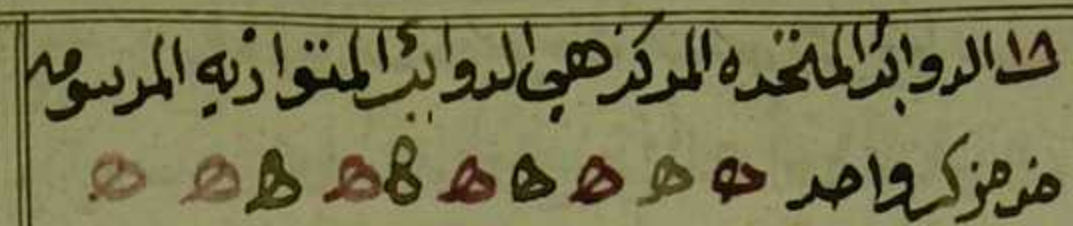 ١٨ الدوائر المتحده المركز هي الدوائر المتوازيه المرسومه
من مركز واحد ه ه ه ه ه ه ه ه ه ه